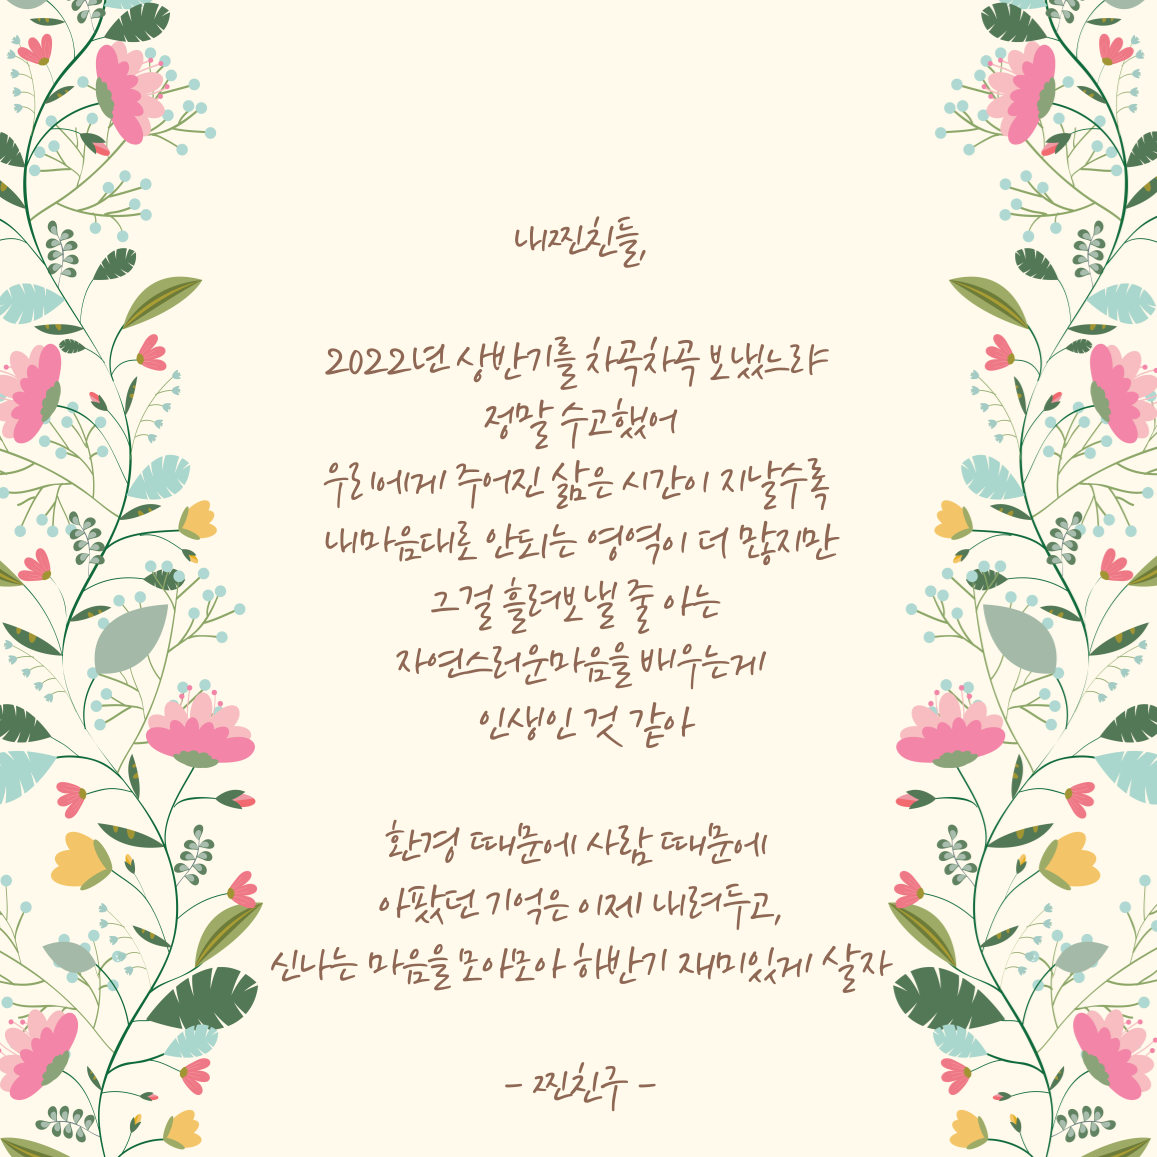 내찐친들,
2022년 상반기를 차곡차곡 보냈느랴
정말 수고했어
우리에게 주어진 삶은 시간이 지날수록
내마음대로 안되는 영역이 더 많지만
그걸 흘려보낼 줄 아는
자연스러운마음을 배우는게
인생인 것 같아
환경 때문에 사람 때문에
아팠던 기억은 이제 내려두고,
신나는 마음을 모아모아 하반기 재미있게 살자
- 찐친구 -